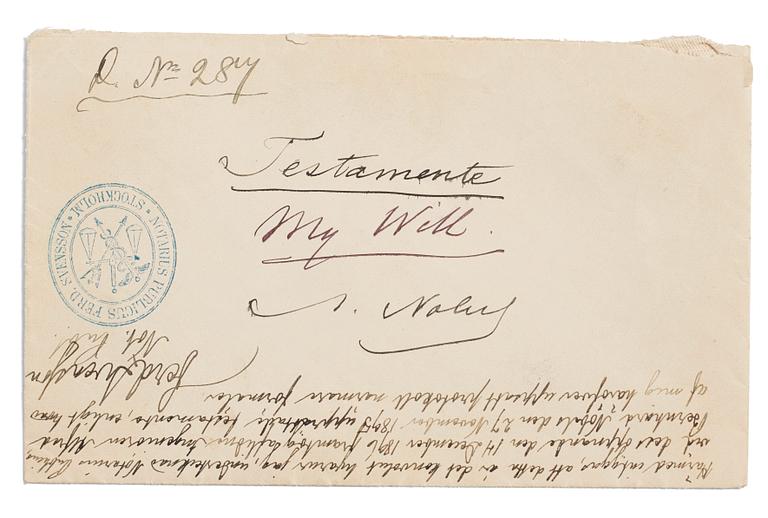 D. No 287
Testamente
My Will.
A. Nobel
NOTARIUS PUBLICUS FERD. SVENSSON • STOCKHOLM •
Härmed intygas, att detta är det konvolut hvarur jag, undertecknad Notarius Publicus,
vid dess öppnande den 14 December 1896 framtog aflidne Ingeniören Alfred
Bernhard Nobels den 27 November 1895 upprättade testamente, enligt
af mig häröfver uppsatt protokoll närmare förmäler
Ferd. Svensson
Not. Publ.